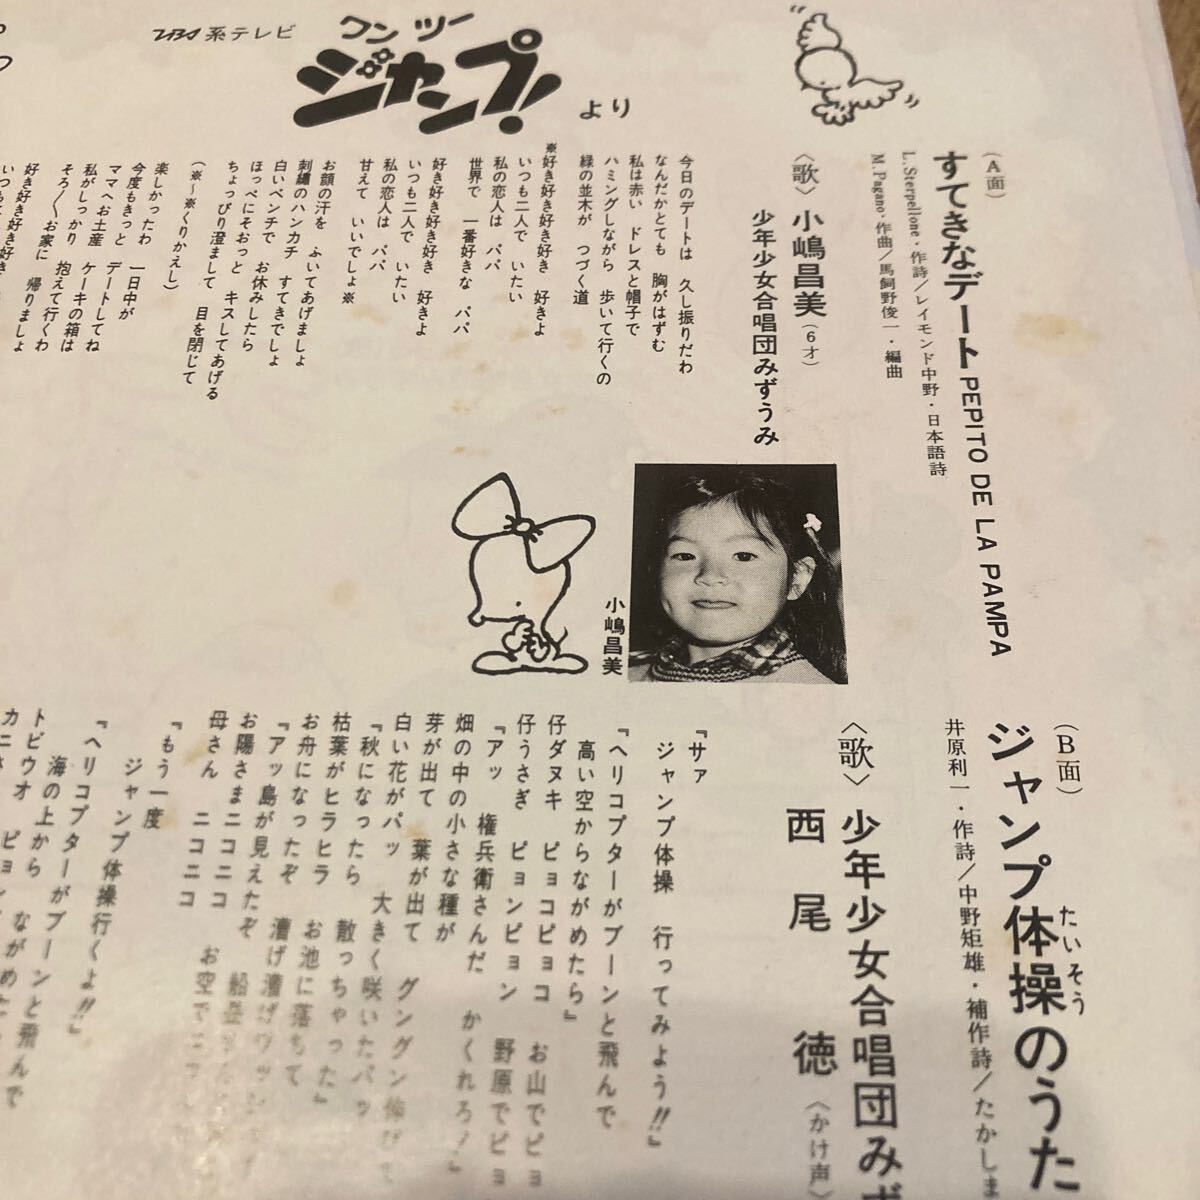 TBS系テレビ
ワン ツー
ジャンプ!
より
(A面)
すてきなデート PEPITO DE LA PAMPA
L. Sterpellone・作詩/レイモンド中野・日本語詩
M. Pagano・作曲/馬飼野俊一・編曲
〈歌〉 小嶋昌美(6才)
少年少女合唱団みずうみ
今日のデートは 久し振りだわ
なんだかとても 胸がはずむ
私は赤い ドレスと帽子で
ハミングしながら 歩いて行くの
緑の並木が つづく道
※好き好き好き好き 好きよ
いつも二人で いたい
私の恋人は パパ
世界で 一番好きな パパ
好き好き好き好き 好きよ
いつも二人で いたい
私の恋人は パパ
甘えて いいでしょ※
お顔の汗を ふいてあげましょ
刺繍のハンカチ すてきでしょ
白いベンチで お休みしたら
ほっぺにそおっと キスしてあげる
ちょっぴり澄まして 目を閉じて
(※〜※くりかえし)
楽しかったわ 一日中が
今度もきっと デートしてね
ママへお土産 ケーキの箱は
私がしっかり 抱えて行くわ
そろ〱お家に 帰りましょ
好き好き好き好き
いつも
小嶋昌美
(B面)
ジャンプ体操のうた
たいそう
井原利一・作詩/中野矩雄・補作詩/たかしま
〈歌〉 少年少女合唱団みず
西尾 徳〈かけ声〉
『サァ
ジャンプ体操 行ってみよう!!』
『ヘリコプターがブーンと飛んで
高い空からながめたら』
仔ダヌキ ピョコピョコ お山でピョ
仔うさぎ ピョンピョン 野原でピョ
『アッ 権兵衛さんだ かくれろ!』
畑の中の小さな種が
芽が出て 葉が出て グングン伸び
白い花がパッ 大きく咲いたパッ
『秋になったら 散っちゃった』
枯葉がヒラヒラ お池に落ちて
お舟になったぞ 漕げ漕げ
『アッ島が見えたぞ 船
お陽さまニコニコ お空で
母さん ニコニコ
『もう一度
ジャンプ体操行くよ!!』
『ヘリコプターがブーンと飛んで
海の上から ながめた
トビウオ ピョン
カニさ